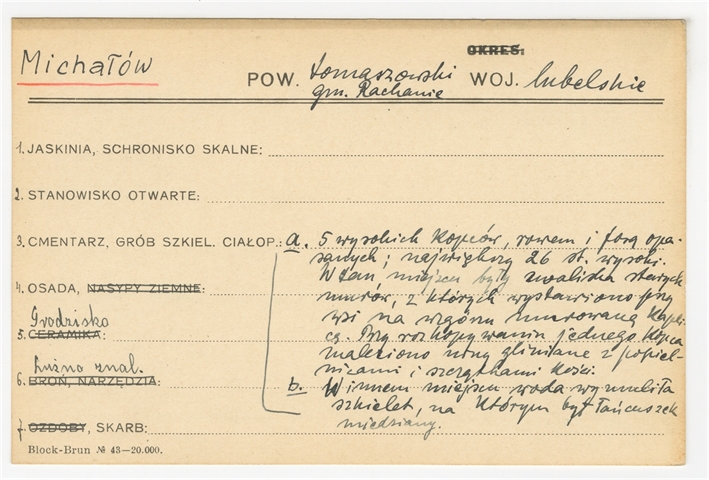 Michałów
OKRES:
POW. tomaszowski WOJ. lubelskie
gm. Rachanie
1. JASKINIA, SCHRONISKO SKALNE:
2. STANOWISKO OTWARTE:
3. CMENTARZ, GRÓB SZKIEL. CIAŁOP.: a. 5 wysokich kopców, rowem i fosą opa-
sanych; największy 26 st. wysoki.
W tem miejscu były zwaliska starych
4. OSADA, NASYPY ZIEMNE:
murów, z których wystawiono przy
Grodzisko
wsi na wzgórzu murowaną kapli-
5. CERAMIKA:
cę. Przy rozkopywaniu jednego kopca
znaleziono urny gliniane z popiel-
Luźno znal.
nicami i szczątkami kości.
6. BROŃ, NARZĘDZIA:
b. W innem miejscu woda wymuliła
szkielet, na którym był łańcuszek
7. OZDOBY, SKARB:
miedziany.
Block-Brun № 43—20.000.